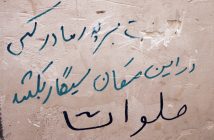 بر پدر و مادر کسی
در این مکان سیگار بکشد
صلوات